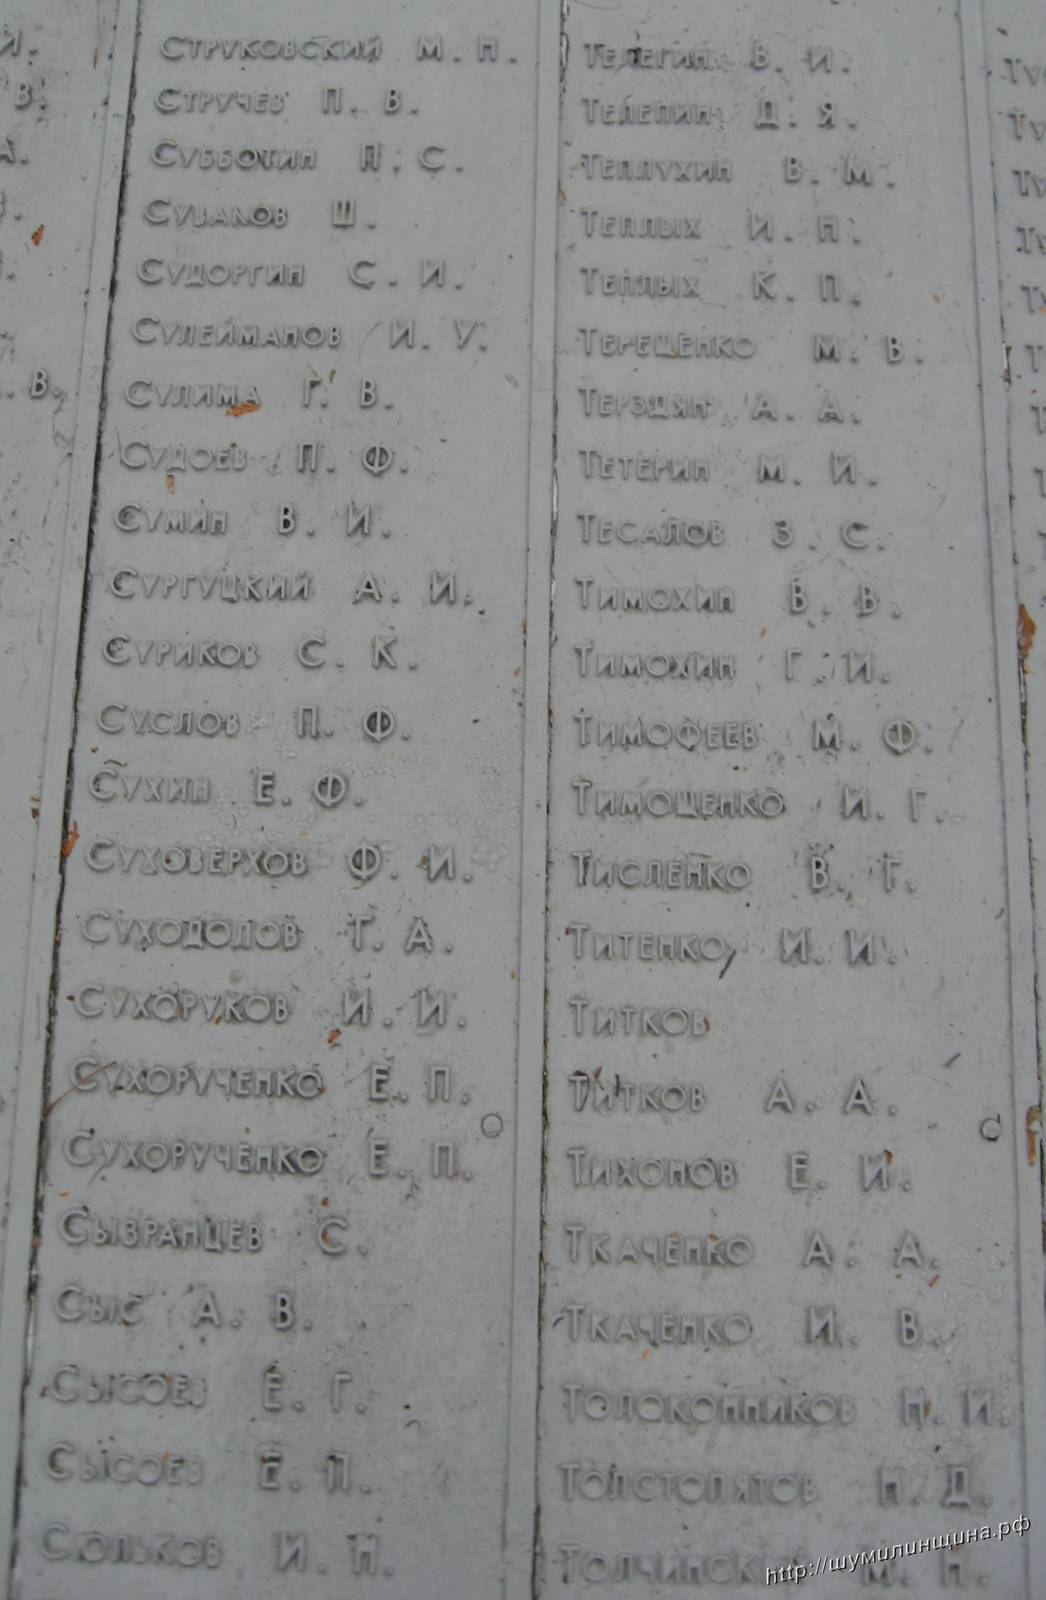 Струковский М. Н.
Стручев П. В.
Субботин П. С.
Сузаков Ш.
Судоргин С. И.
Сулейманов И. У.
Сулима Г. В.
Судоев П. Ф.
Сумин В. И.
Сургуцкий А. И.
Суриков С. К.
Суслов П. Ф.
Сухин Е. Ф.
Суховерхов Ф. И.
Суходолов Г. А.
Сухоруков И. И.
Сухорученко Е. П.
Сухорученко Е. П.
Сызранцев С.
Сыс А. В.
Сысоев Е. Г.
Сысоев Е. П.
Сюльков И. Н.
Телегин В. И.
Телепин Д. Я.
Теплухин В. М.
Теплых И. Н.
Теплых К. П.
Терещенко М. В.
Терздян А. А.
Тетерин М. И.
Тесалов З. С.
Тимохин В. В.
Тимохин Г. И.
Тимофеев М. Ф.
Тимощенко И. Г.
Тисленко В. Г.
Титенко И. И.
Титков
Титков А. А.
Тихонов Е. И.
Ткаченко А. А.
Ткаченко И. В.
Толоконников Н. И.
Толстопятов Н. Д.
Толчинский М. Н.
http://шумилинщина.рф